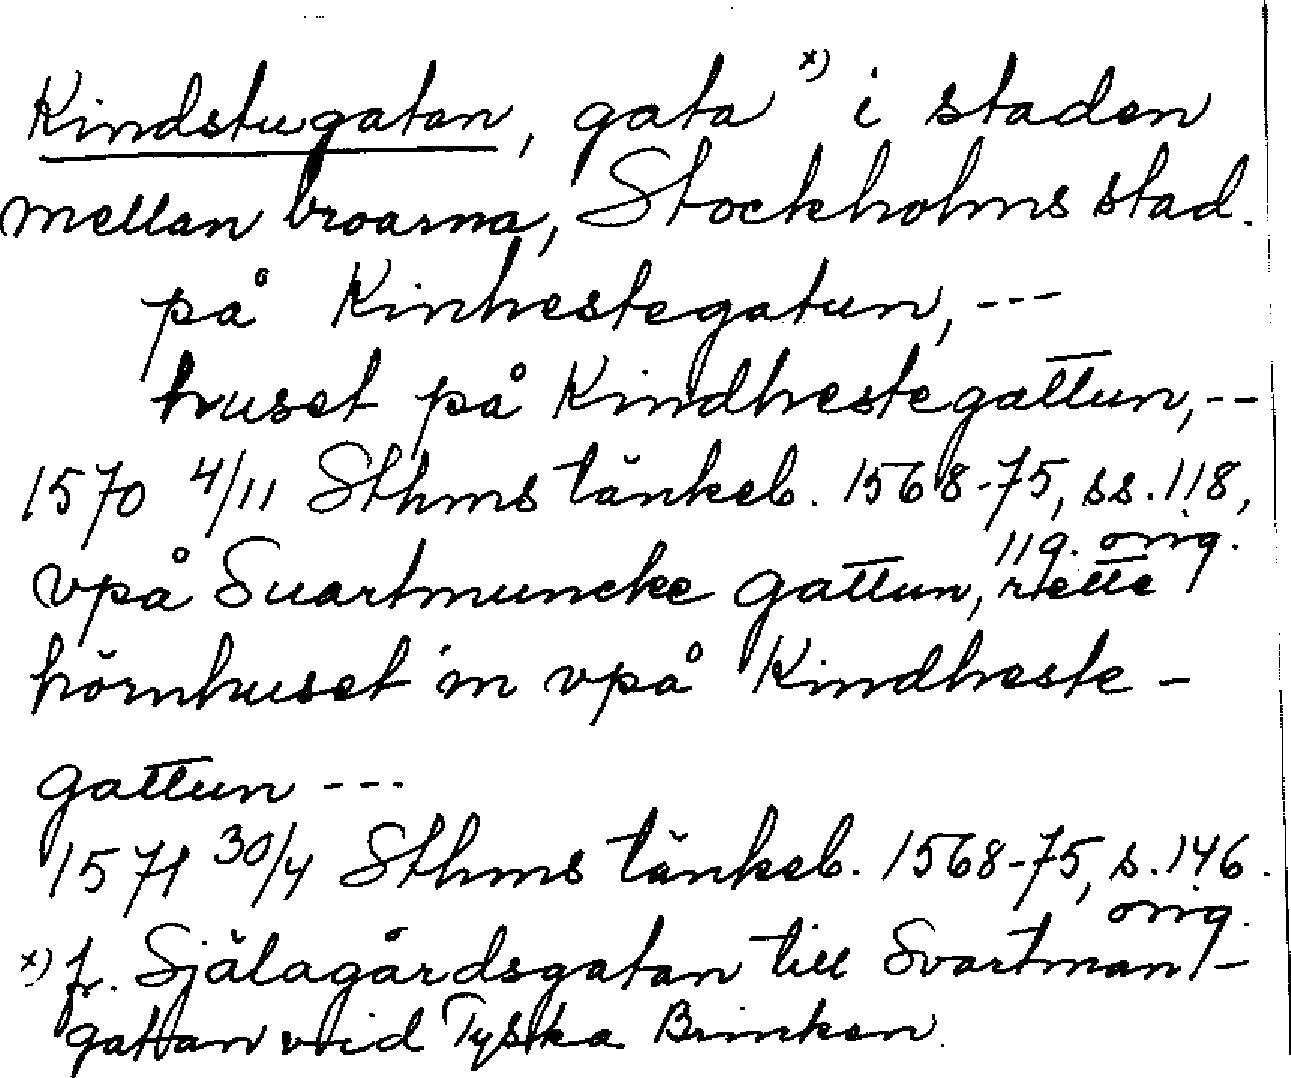 Kindstugatan, gata x) i staden
mellan broarna, Stockholms stad.
på Kinhestegatun, ---
huset på Kindhestegattun, --
1570 4/11 Sthms tänkeb. 1568-75, ss. 118,
119. orig.
vpå Suartmuncke gattun, rette
hörnhuset in vpå Kindheste-
gattun ---
1571 30/4 Sthms tänkeb. 1568-75, s. 146.
orig.
x) fr. Själagårdsgatan till Svartman-
gatan vid Tyska Brinken.